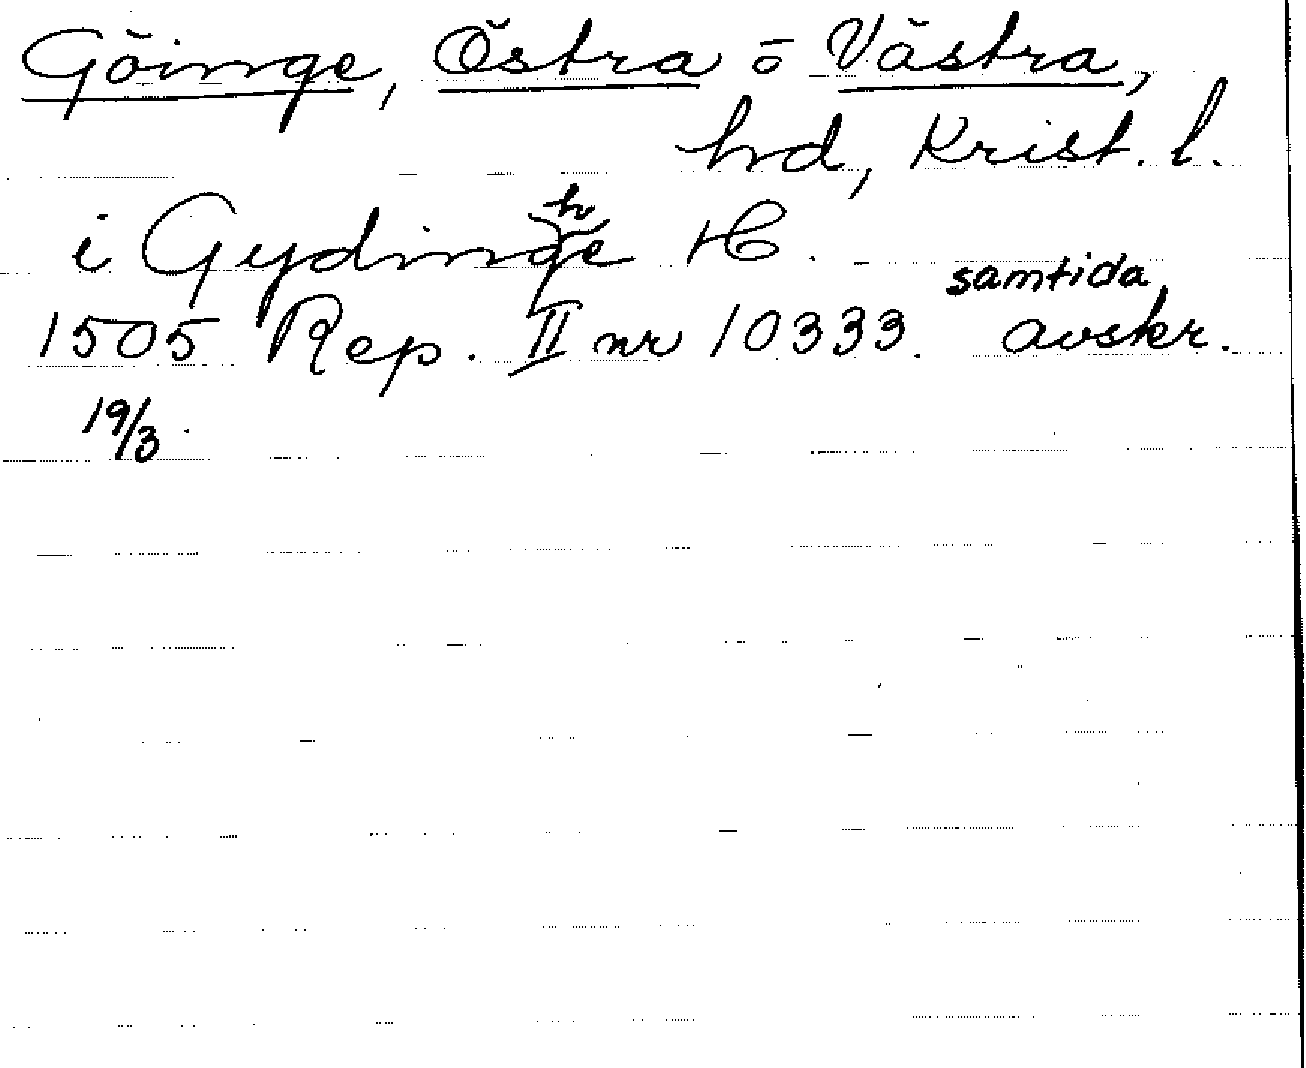 Göinge, Östra o Västra,
hd, Krist. l.
i Gydinghe H.
1505 Rep. II nr 10333. samtida avskr.
19/3